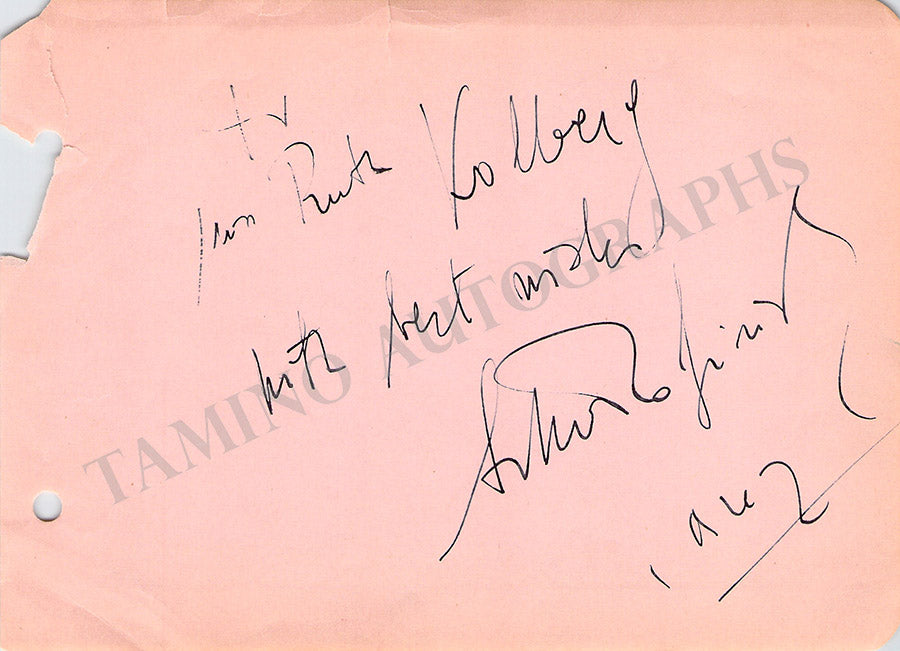 to
Miss Ruth Kolberg
with best wishes
1942
TAMINO AUTOGRAPHS